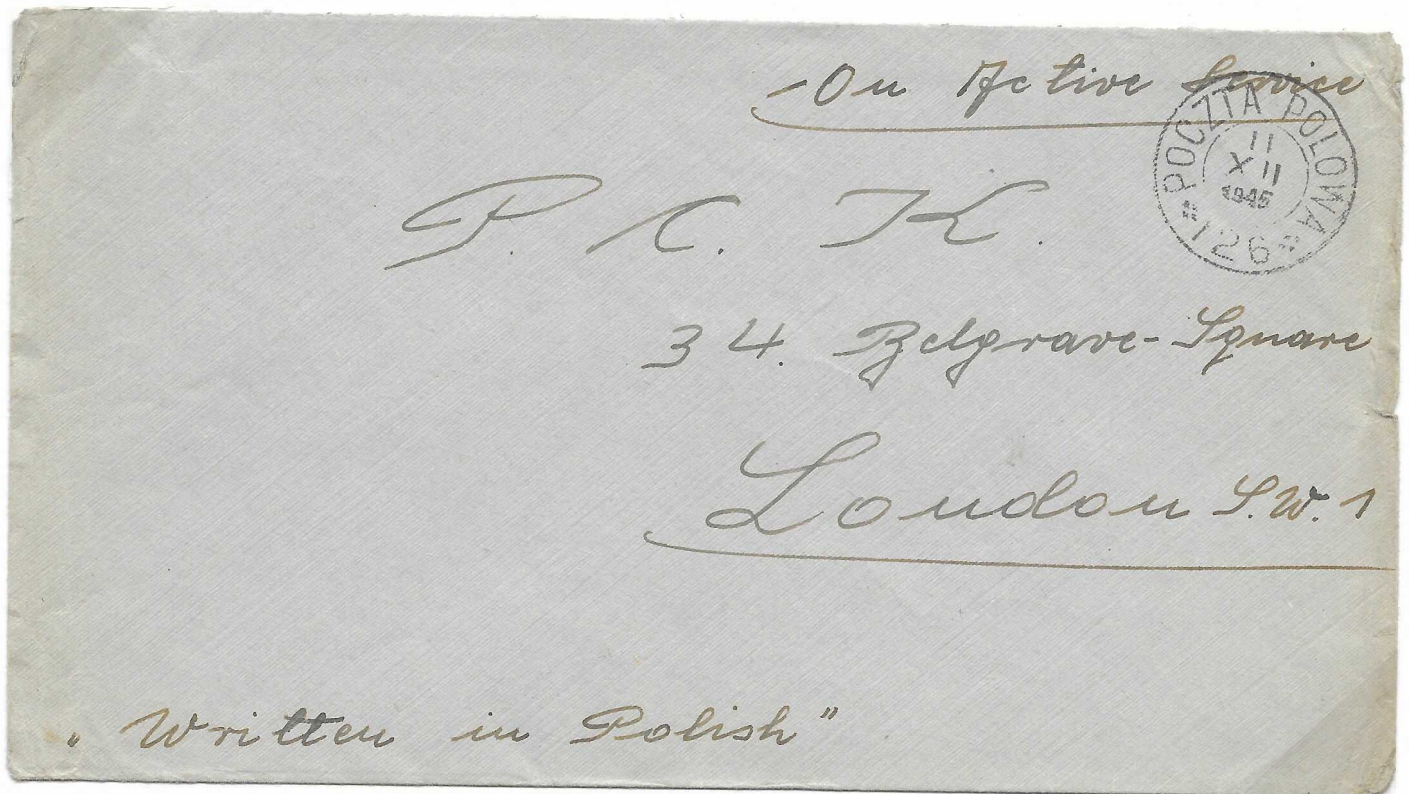 On Active Service
POCZTA POLOWA
11
XII
1945
* 126 *
P. C. K.
34. Belgrave-Square
London S.W. 1
„ Written in Polish"